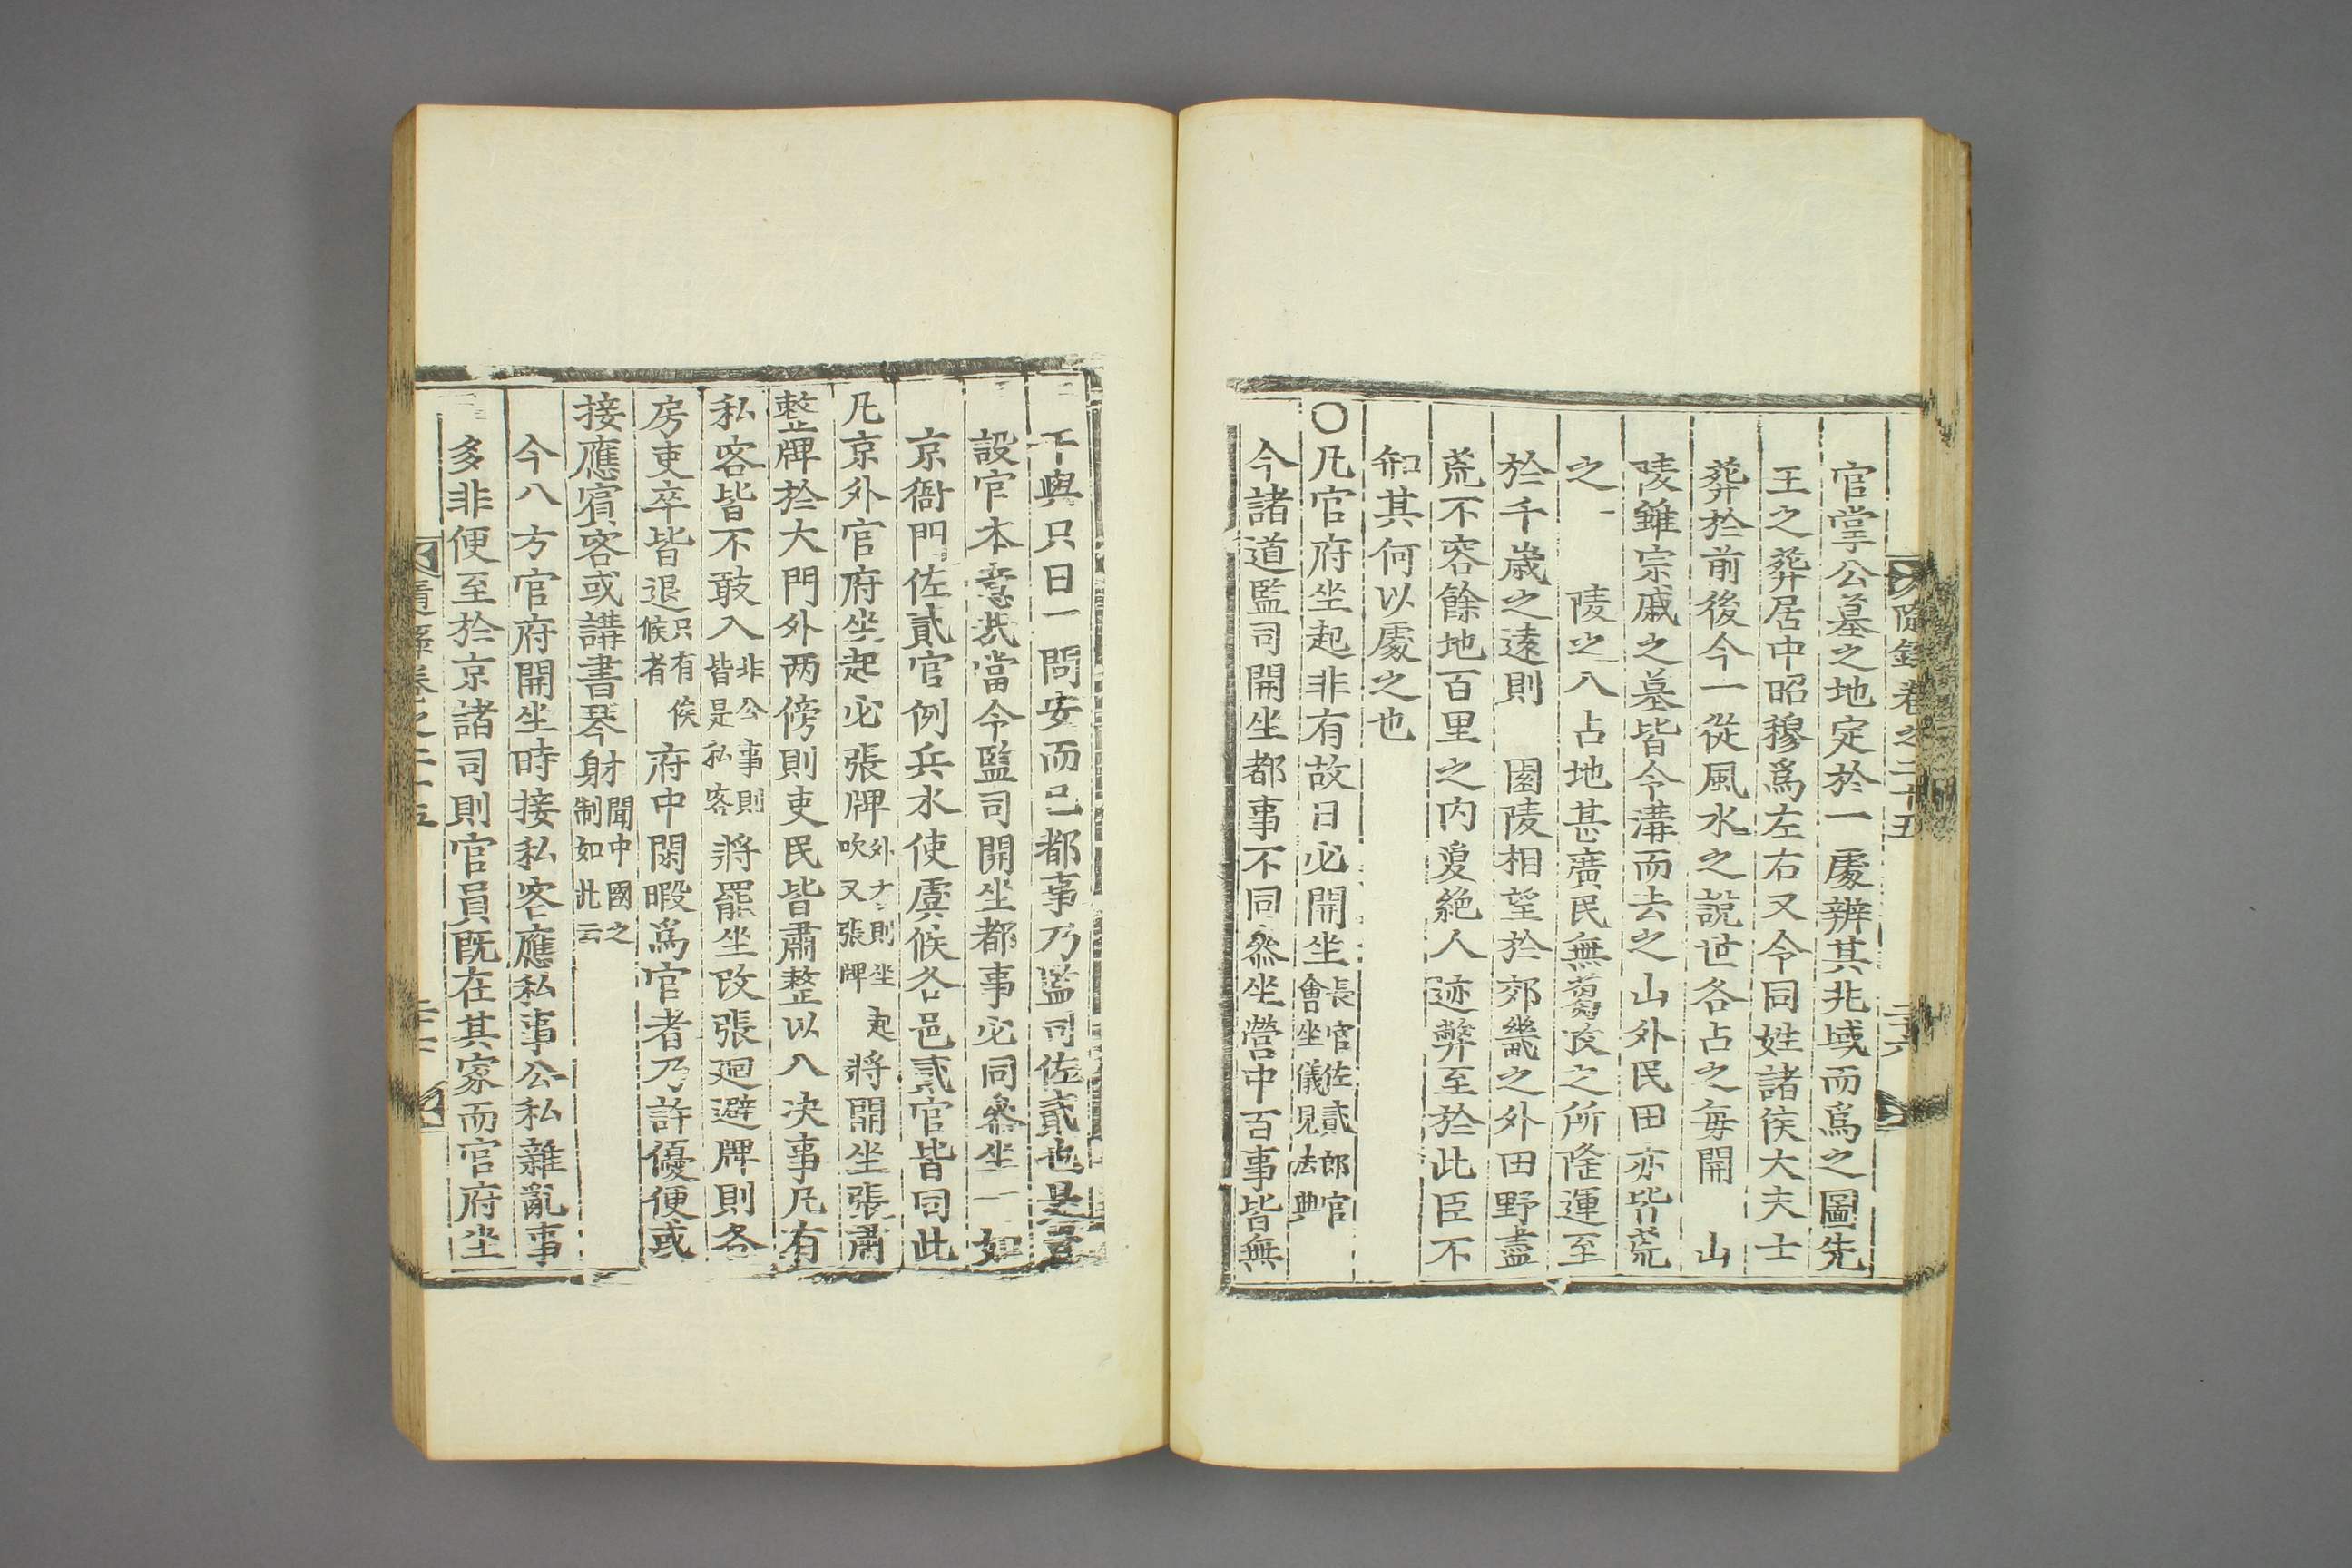 隨錄卷之二十五
二十六
官掌公墓之地定於一處辨其兆域而爲之圖先
王之葬居中昭穆爲左右又令同姓諸侯大夫士
葬於前後今一從風水之說世各占之每開 山
陵雖宗戚之墓皆令溝而去之山外民田亦皆荒
之一 陵之入占地甚廣民無蒭茭之所隆運至
於千歲之遠則 園陵相望於郊畿之外田野盡
荒不容餘地百里之內夐絶人迹弊至於此臣不
知其何以處之也
〇凡官府坐起非有故日必開坐長官佐貳郞官會坐儀見法典
今諸道監司開坐都事不同叅坐營中百事皆無
不與只日一問安而已都事乃監司佐貳也是豈
設官本意哉當令監司開坐都事必同叅坐一如
京衙門佐貳官例兵水使虞候各邑貳官皆同此
凡京外官府坐起必張牌外方則坐起吹又張牌將開坐張肅
整牌於大門外兩傍則吏民皆肅整以入決事凡有
私客皆不敢入非公事則皆是私客將罷坐改張廻避牌則各
房吏卒皆退只有候候者府中閑暇爲官者乃許優便或
接應賓客或講書琴射聞中國之制如此云
今八方官府開坐時接私客應私事公私雜亂事
多非便至於京諸司則官員旣在其家而官府坐
卷之二十五